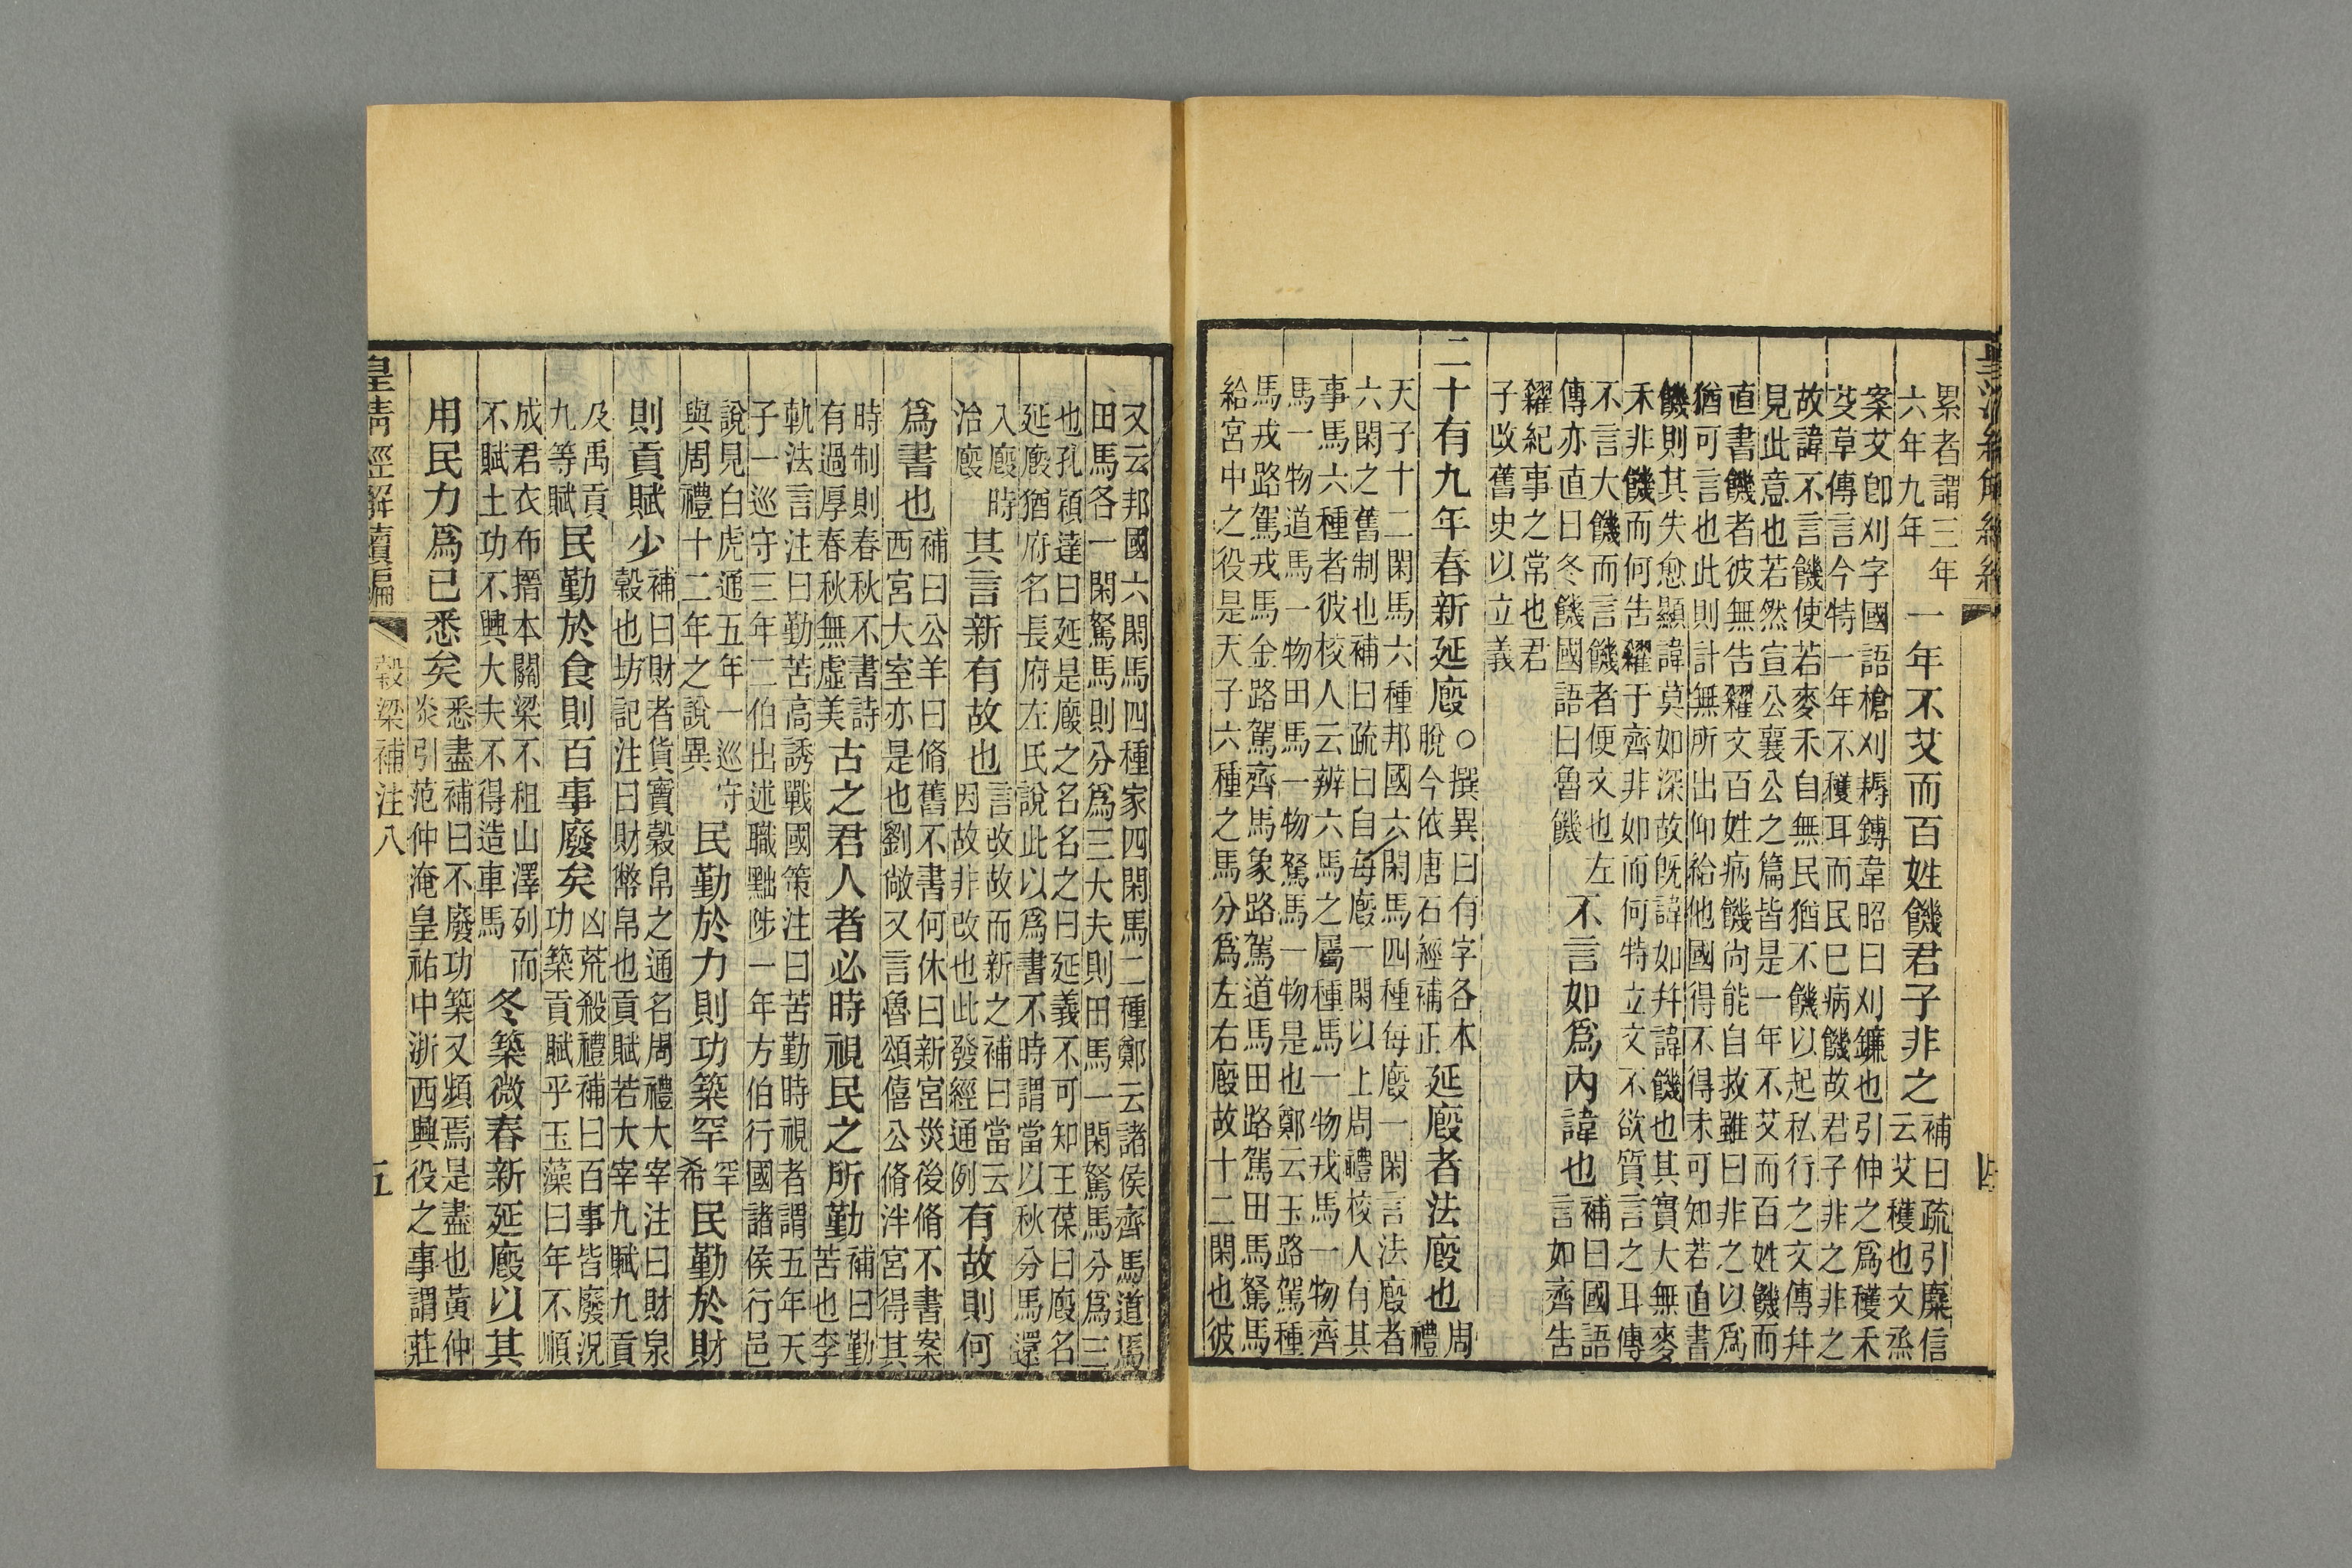 累者謂三年
六年九年
一年不艾而百姓饑君子非之
補曰疏引糜信
云艾穫也文烝
案艾卽刈字國語槍刈耨鎛韋昭曰刈鐮也引伸之爲穫禾
艾草傳言今特一年不穫耳而民巳病饑故君子非之非之
故諱不言饑使若麥禾自無民猶不饑以起私行之文傳幷
見此意也若然宣公襄公之篇皆是一年不艾而百姓饑而
直書饑者彼無告糴文百姓病饑尚能自救雖曰非之以爲
猶可言也此則計無所出仰給他國得不得未可知若直書
饑則其失愈顯諱莫如深故旣諱如幷諱饑也其實大無麥
禾非饑而何告糴于齊非如而何特立文不欲質言之耳傳
不言大饑而言饑者便文也左
傳亦直曰冬饑國語曰魯饑
不言如爲內諱也
補曰國語
言如齊告
糴紀事之常也君
子改舊史以立義
二十有九年春新延廄
○撰異曰有字各本
脫今依唐石經補正
延廄者法廄也
周
禮
天子十二閑馬六種邦國六閑馬四種每廄一閑言法廄者
六閑之舊制也補曰疏曰自每廄一閑以上周禮校人有其
事馬六種者彼校人云辨六馬之屬種馬一物戎馬一物齊
馬一物道馬一物田馬一物駑馬一物是也鄭云玉路駕種
馬戎路駕戎馬金路駕齊馬象路駕道馬田路駕田馬駑馬
給宮中之役是天子六種之馬分爲左右廄故十二閑也彼
又云邦國六閑馬四種家四閑馬二種鄭云諸侯齊馬道馬
田馬各一閑駑馬則分爲三大夫則田馬一閑駑馬分爲三
也孔穎達曰延是廄之名名之曰延義不可知王葆曰廄名
延廄猶府名長府左氏說此以爲書不時謂當以秋分馬還
入廄時
治廄
其言新有故也
言改故而新之補曰當云
因故非改也此發經通例
有故則何
爲書也
補曰公羊曰脩舊不書何休曰新宮災後脩不書案
西宮大室亦是也劉敞又言魯頌僖公脩泮宮得其
時制則春秋不書詩
有過厚春秋無虛美
古之君人者必時視民之所勤
補曰勤
苦也李
軌法言注曰勤苦高誘戰國策注曰苦勤時視者謂五年天
子一巡守三年二伯出述職黜陟一年方伯行國諸侯行邑
說見白虎通五年一巡守
與周禮十二年之說異
民勤於力則功築罕
罕
希
民勤於財
則貢賦少
補曰財者貨寶穀帛之通名周禮大宰注曰財泉
穀也坊記注曰財幣帛也貢賦若大宰九賦九貢
及禹貢
九等賦
民勤於食則百事廢矣
凶荒殺禮補曰百事皆廢況
功築貢賦乎玉藻曰年不順
成君衣布搢本關梁不租山澤列而
不賦土功不興大夫不得造車馬
冬築微春新延廄以其
用民力爲已悉矣
悉盡補曰不廢功築又頻焉是盡也黃仲
炎引范仲淹皇祐中浙西興役之事謂莊
皇清經解續編
穀梁補注八
五